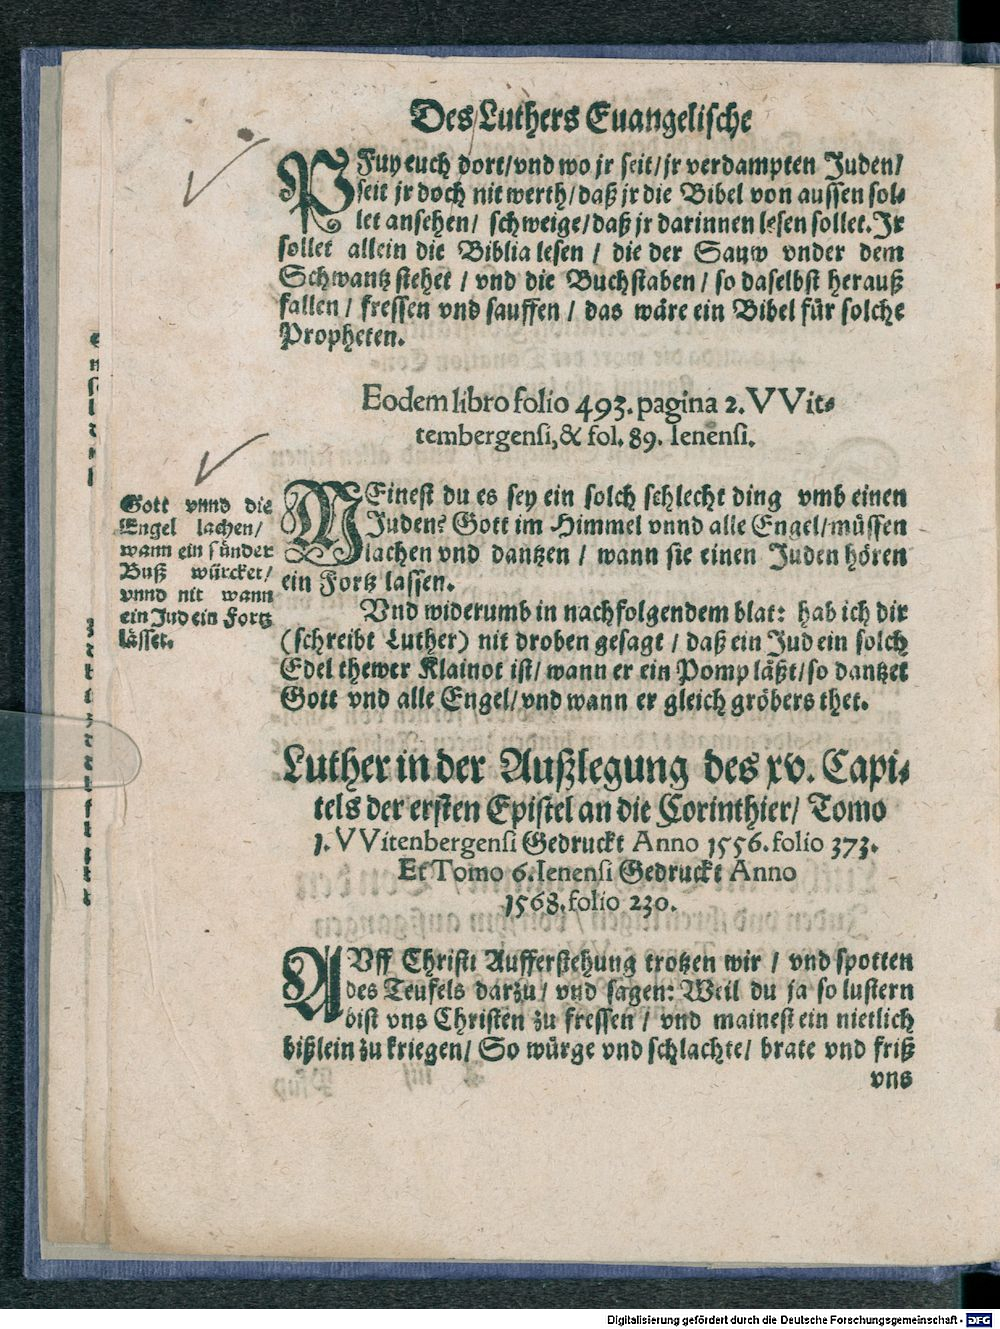 Des Luthers Euangelische
PFuy euch dort/vnd wo jr seit/jr verdampten Juden/
seit jr doch nit werth/daß jr die Bibel von aussen sol-
let ansehen/ schweige/daß jr darinnen lesen sollet. Jr
sollet allein die Biblia lesen / die der Sauw vnder dem
Schwantz stehet / vnd die Buchstaben / so daselbst herauß
fallen / fressen vnd sauffen / das wäre ein Bibel für solche
Propheten.
Eodem libro folio 493. pagina 2. VVit-
tembergensi, & fol. 89. Ienensi.
Gott vnnd die
Engel lachen/
wann ein sünder
Buß würcket/
vnnd nit wann
ein Jud ein Fortz
lässet.
MEinest du es sey ein solch schlecht ding vmb einen
Juden? Gott im Himmel vnnd alle Engel/müssen
lachen vnd dantzen / wann sie einen Juden hören
ein Fortz lassen.
Vnd widerumb in nachfolgendem blat: hab ich dir
(schreibt Luther) nit droben gesagt / daß ein Jud ein solch
Edel thewer Klainot ist/ wann er ein Pomp läßt/so dantzet
Gott vnd alle Engel/vnd wann er gleich gröbers thet.
Luther in der Außlegung des xv. Capi-
tels der ersten Epistel an die Corinthier/ Tomo
1. VVitenbergensi Gedruckt Anno 1556. folio 373.
Et Tomo 6. Ienensi Gedruckt Anno
1568. folio 230.
AVff Christi Aufferstehung trotzen wir / vnd spotten
des Teufels darzu/ vnd sagen: Weil du ja so lustern
bist vns Christen zu fressen / vnd mainest ein nietlich
bißlein zu kriegen/ So würge vnd schlachte/ brate vnd friß
vns
Digitalisierung gefördert durch die Deutsche Forschungsgemeinschaft - DFG